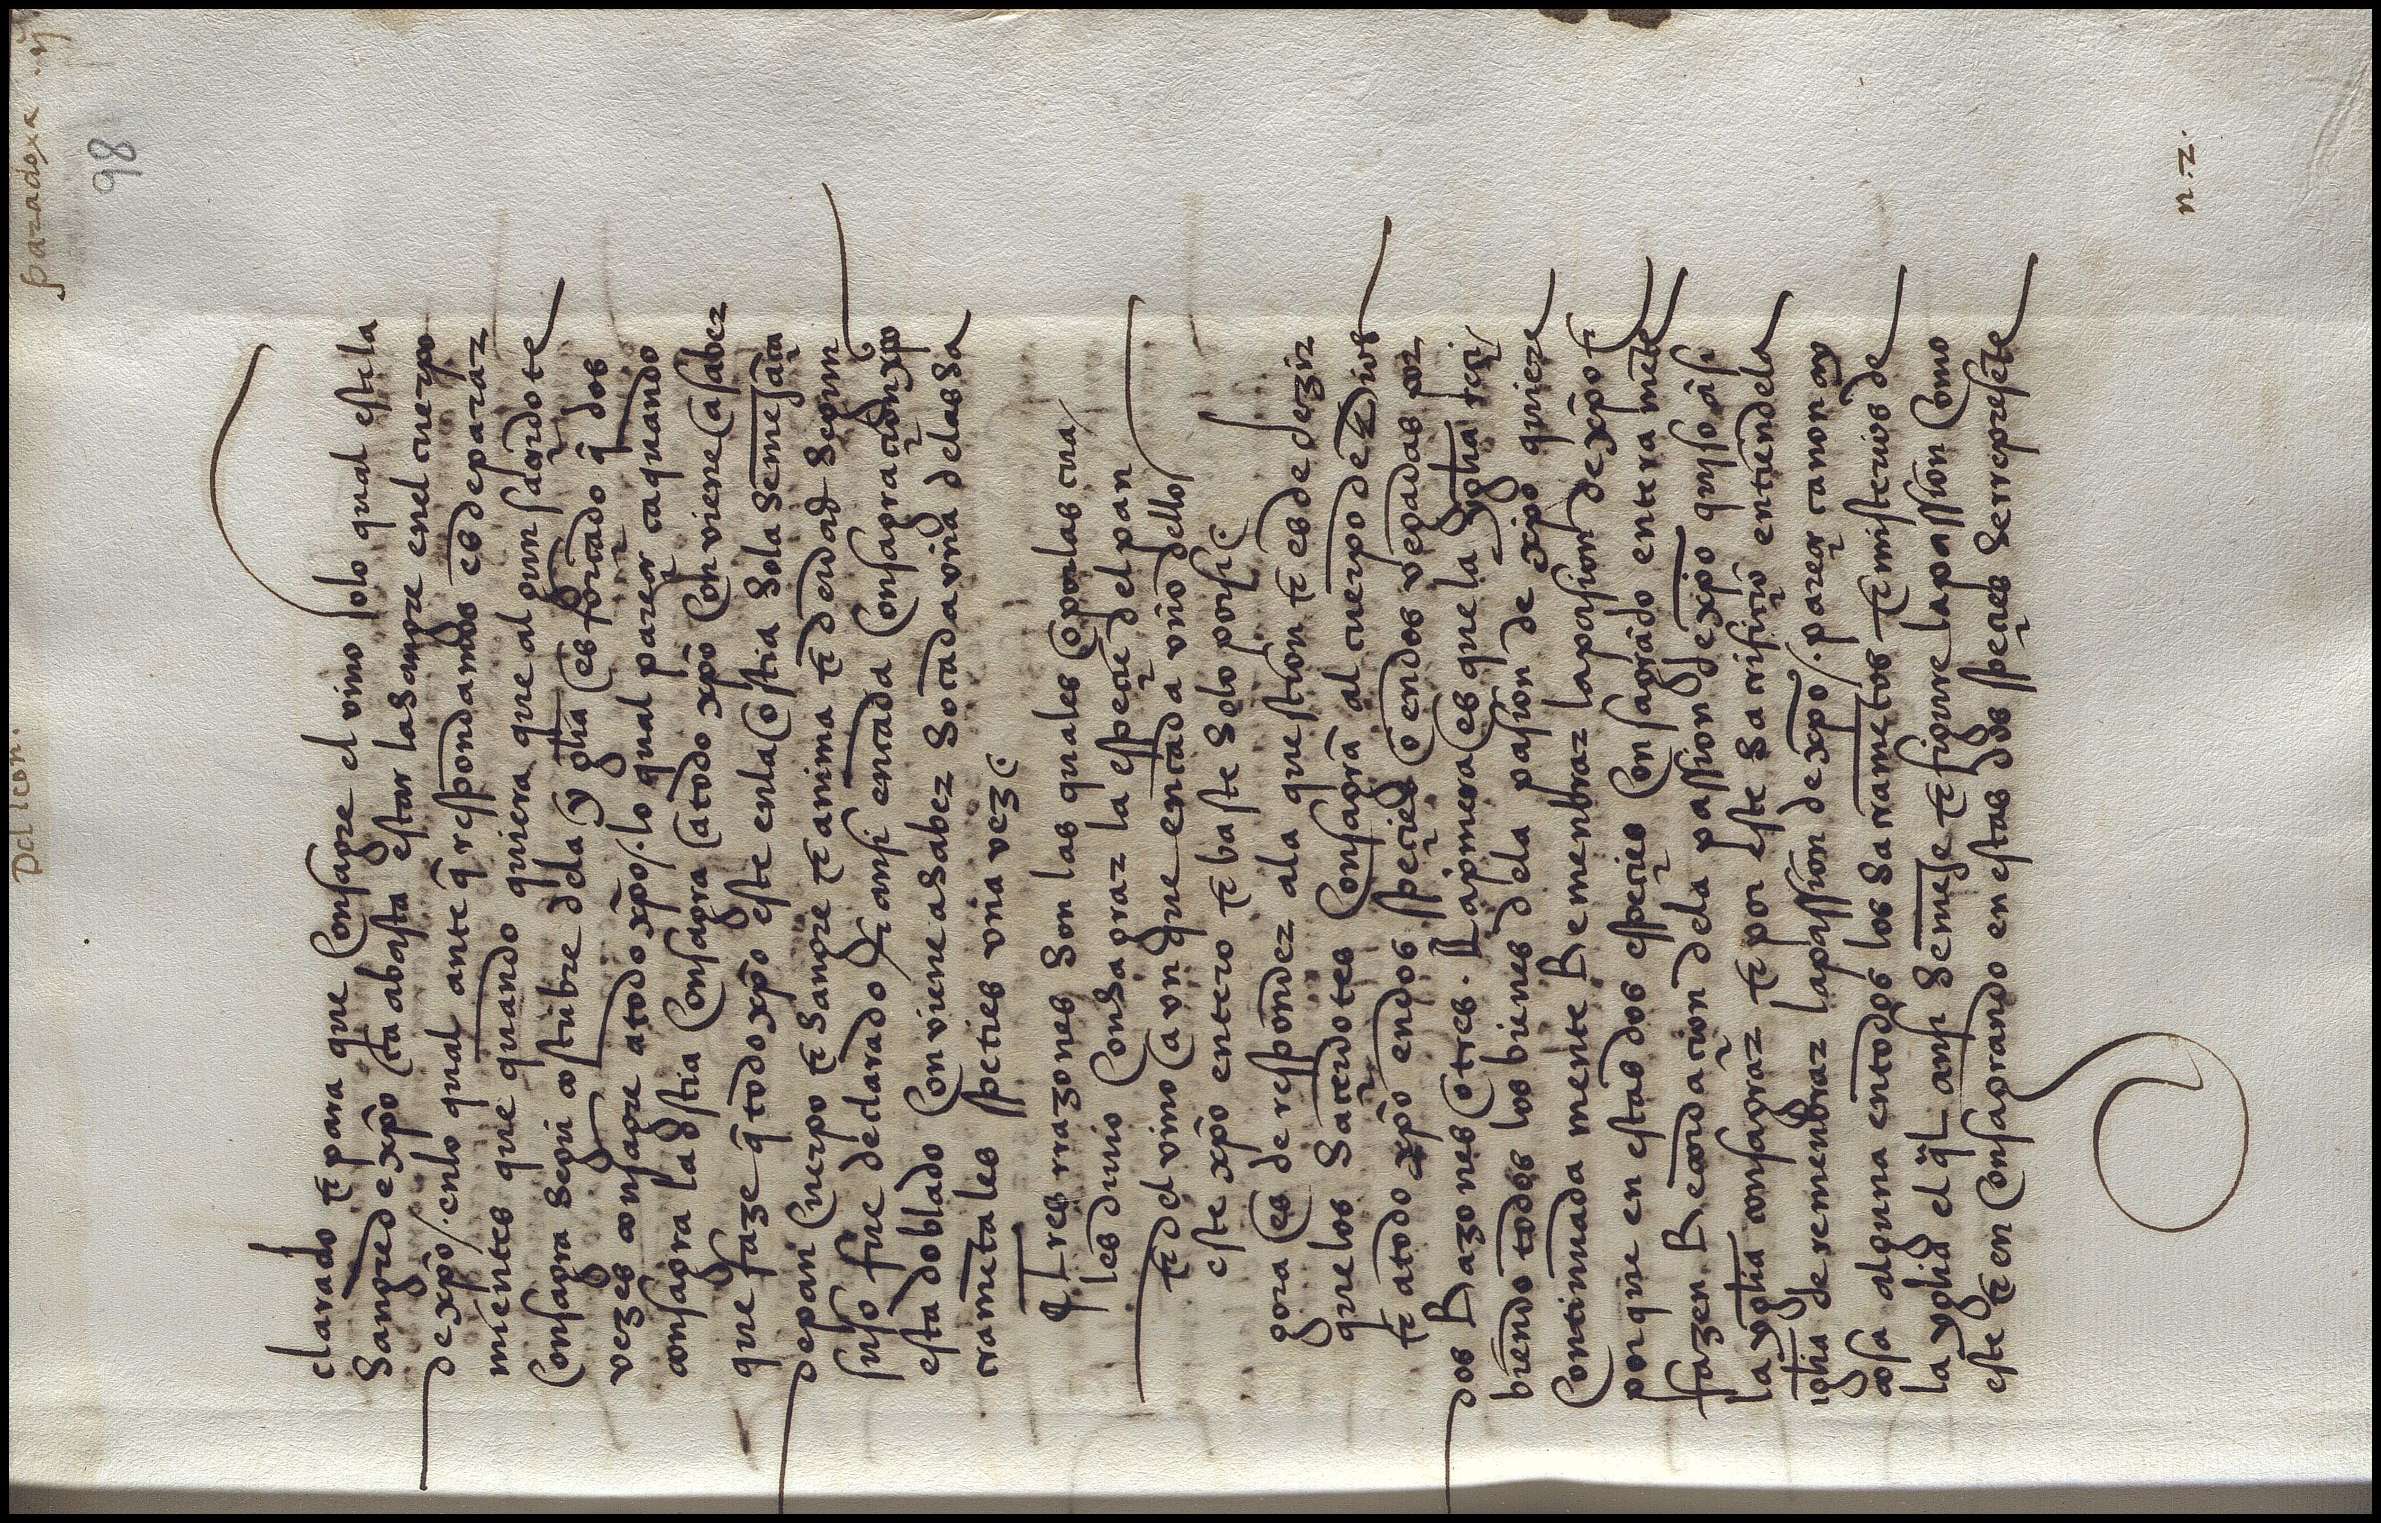 pal leon.
paradoxa .ij
98
clarado τ para que Consagre el vino solo qual este la
Sangre de xp̄o (ca abasta estar la Sangre enel cuerpo
de xp̄o /. enlo qual ante q̄ respondamos es de parar
mientes que quando quiera que algun sacerdote
Consagra segun costūbre dela yglīa (es forçado q̄ dos
vezes consagre a todo xp̄o /. lo qual pareçe ca quando
consagra la ostia Consagra (a todo xp̄o Conviene (a saber
que faze q̄ todo xp̄o este enla (ostia Sola Semejāça
de pan Cuerpo τ Sangre τ anima τ
suso fue declarado τ ansi encada Consagraçion xp̄o
esta doblado Conviene a Saber So cada vna delas Sa
cramētales speties vna vez
Tres rrazones Son las quales (o por las cua
les devio Consagrar la espeçie del pan
τ del vino (a vn que en cada vno dello
este xp̄o entero τ baste Solo por si
gora (es de responder ala question τ es de dezir
que los Saçerdotes Consagrā al cuerpo de Dios
τ a todo xp̄o en dos speçies (o en dos vegadas por
dos Razones (o tres. La primera (es que la yglīa
biendo todos los bienes dela pasion de xp̄o quiere
Continuada mente Remenbrar la passion de xp̄o τ
porque en estas dos espeçies Consagrādo entera mēte
fazen Recordaçion dela passion de xp̄o quiso
la yglīa consagrar τ por este Sacrifiçio entiende la
iglīa de remenbrar la passion de xp̄o /. pareçe ca non ay
cosa alguna en todos los Sacramētos τ misterios de
la yglīa el q̄l ansi Semeje τ figure la passion Como
este τ en Consagrando en estas dos speçies Se represēte
n.2.